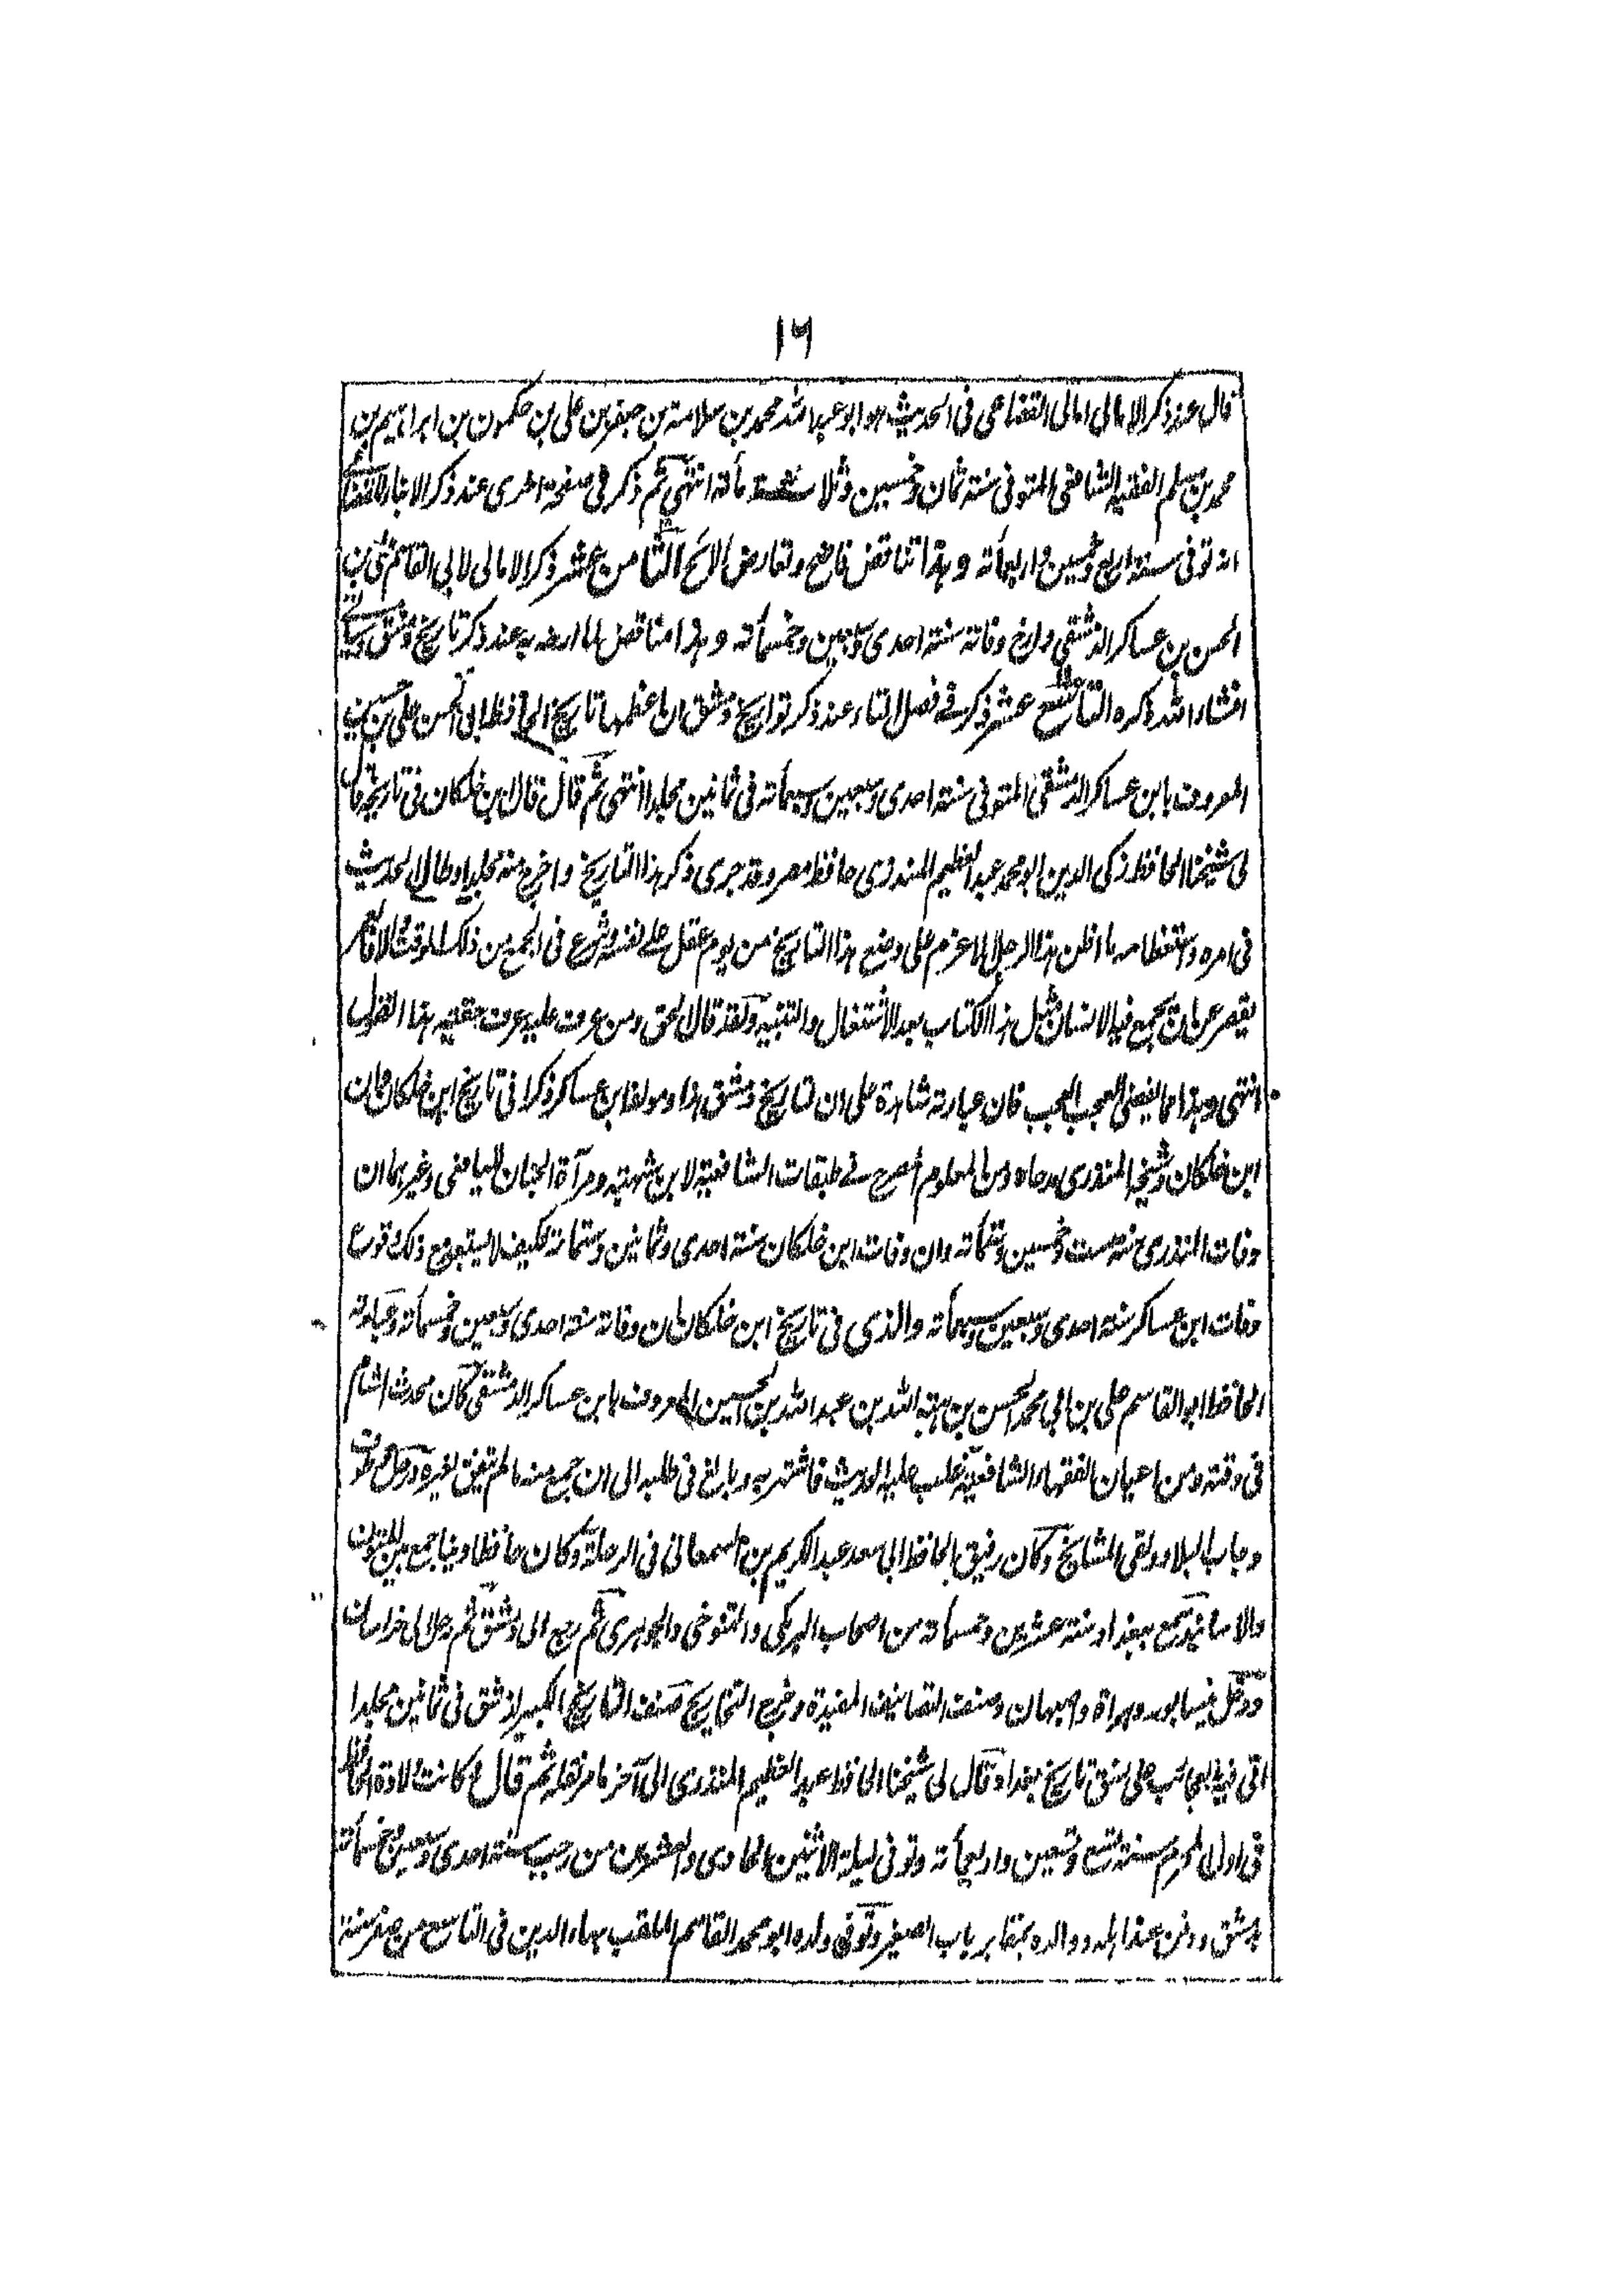 ١٦
قال عند ذكر الامالى امالى القضاعى فى الحديث هو ابو عبد الله محمد بن سلامة بن جعفر بن على بن حكمون بن ابراهيم بن
محمد بن مسلم الفقيه الشافعى المتوفى سنة ثمان وخمسين وثلاث مأته انتهى ثم ذكر فى صفحة اخرى عند ذكر الانباء للقضاعى
انه توفى سنة اربع وخمسين واربعمأته وهذا تناقض فاضح وتعارض لائح الثامن عشر ذكر الامالى لابى القاسم على بن
الحسن بن عساكر الدمشقى وارخ وفاته سنة احدى وسبعين وخمسمأته وهذا مناقض لما ارخه به عند ذكر تاريخ دمشق
انشاء الله ذكره التاسع عشر ذكر فے فصل التاء عند ذكر تواريخ دمشق ان اعظمها تاريخ الحافظ ابى الحسن على بن حسين
المعروف بابن عساكر الدمشقى المتوفى سنة احدى وسبعين وسبعمأته فى ثمانين مجلدا انتهى ثم قال قال ابن خلكان فى تاريخه قال
لى شيخنا الحافظ زكى الدين ابو محمد عبد العظيم المنذرى حافظ مصر وقد جرى ذكر هذا التاريخ واخرج منه مجلدا وطال الحديث
فى امره واستعظامه ما اظن هذا الرجل الا عزم على وضع هذا التاريخ من يوم عقل على نفسه وشرع فى الجمع من ذلك الوقت والا فالعمر
يقصر عن ان يجمع فيه الانسان مثل هذا الكتاب بعد الاشتغال والتنبيه ولقد قال الحق ومن عرف عليه عرف حقيقة هذا القول
انتهى وهذا مما يفضى العجب العجب فان عبارته شاهدة على ان لتاريخ دمشق هذا ومولفه ابن عساكر ذكرا فى تاريخ ابن خلكان وان
ابن خلكان وشيخه المنذرى مدحاه ومن المعلوم المصرح فے طبقات الشافعية لابن شهبة ومرآة الجنان لليافعى وغيرهما ان
وفات المنذرى سنة ست وخمسين وستمأته وان وفات ابن خلكان سنة احدى وثمانين وستمأته فكيف لا يستبعد مع ذلك قوع
وفات ابن عساكر سنة احدى وسبعين وسبعمأته والذى فى تاريخ ابن خلكان ان وفاته سنة احدى وسبعين وخمسمأته وعبارته
الحافظ ابو القاسم على بن ابى محمد الحسن بن هبة الله بن عبد الله بن الحسين المعروف بابن عساكر الدمشقى كان محدث الشام
فى وقته ومن اعيان الفقهاء الشافعية غلب عليه الحديث فاشتهر به وبالغ فى طلبه الى ان جمع منه ما لم يتفق لغيره ورحل وطوف
وجاب البلاد ولقى المشايخ وكان رفيق الحافظ ابى سعد عبد الكريم بن السمعانى فى الرحلة وكان حافظا دينا جمع بين المتون
والاسانيد سمع ببغداد سنة عشرين وخمسمأته من اصحاب البرمكى والتنوخى والجوهرى ثم رجع الى دمشق ثم رحل الى خراسان
ودخل نيسابور وهراة واصبهان وصنف التصانيف المفيدة وخرج التخاريج صنف التاريخ الكبير لدمشق فى ثمانين مجلدا
اتى فيه بالعجائب على نسق تاريخ بغداد قال لى شيخنا الحافظ عبد العظيم المنذرى الى آخر ما مر نقله ثم قال كانت ولادة الحافظ
فى اول المحرم سنة تسع وتسعين واربعمأته وتوفى ليلة الاثنين الحادى والعشرين من رجب سنة احدى وسبعين وخمسمأته
بدمشق ودفن عند اهله ووالده بمقابر باب الصغير وتوفى ولده ابو محمد القاسم الملقب بهاء الدين فى التاسع من صفر سنة